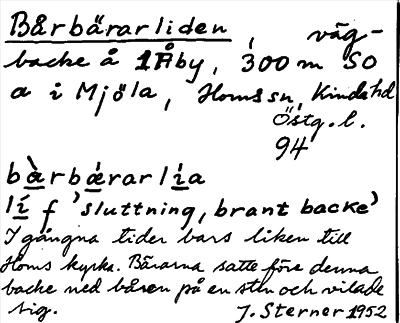 Bårbärarliden, väg-
backe å 1Åby, 300 m SO
a i Mjöla, Homs sn, Kinda hd
Östg. l.
94
bàrbǽrarlía
lí f 'sluttning, brant backe'
I gångna tider bars liken till
Homs kyrka. Bärarna satte före denna
backe ned båren på en sten och vilade
sig. J. Sterner 1952